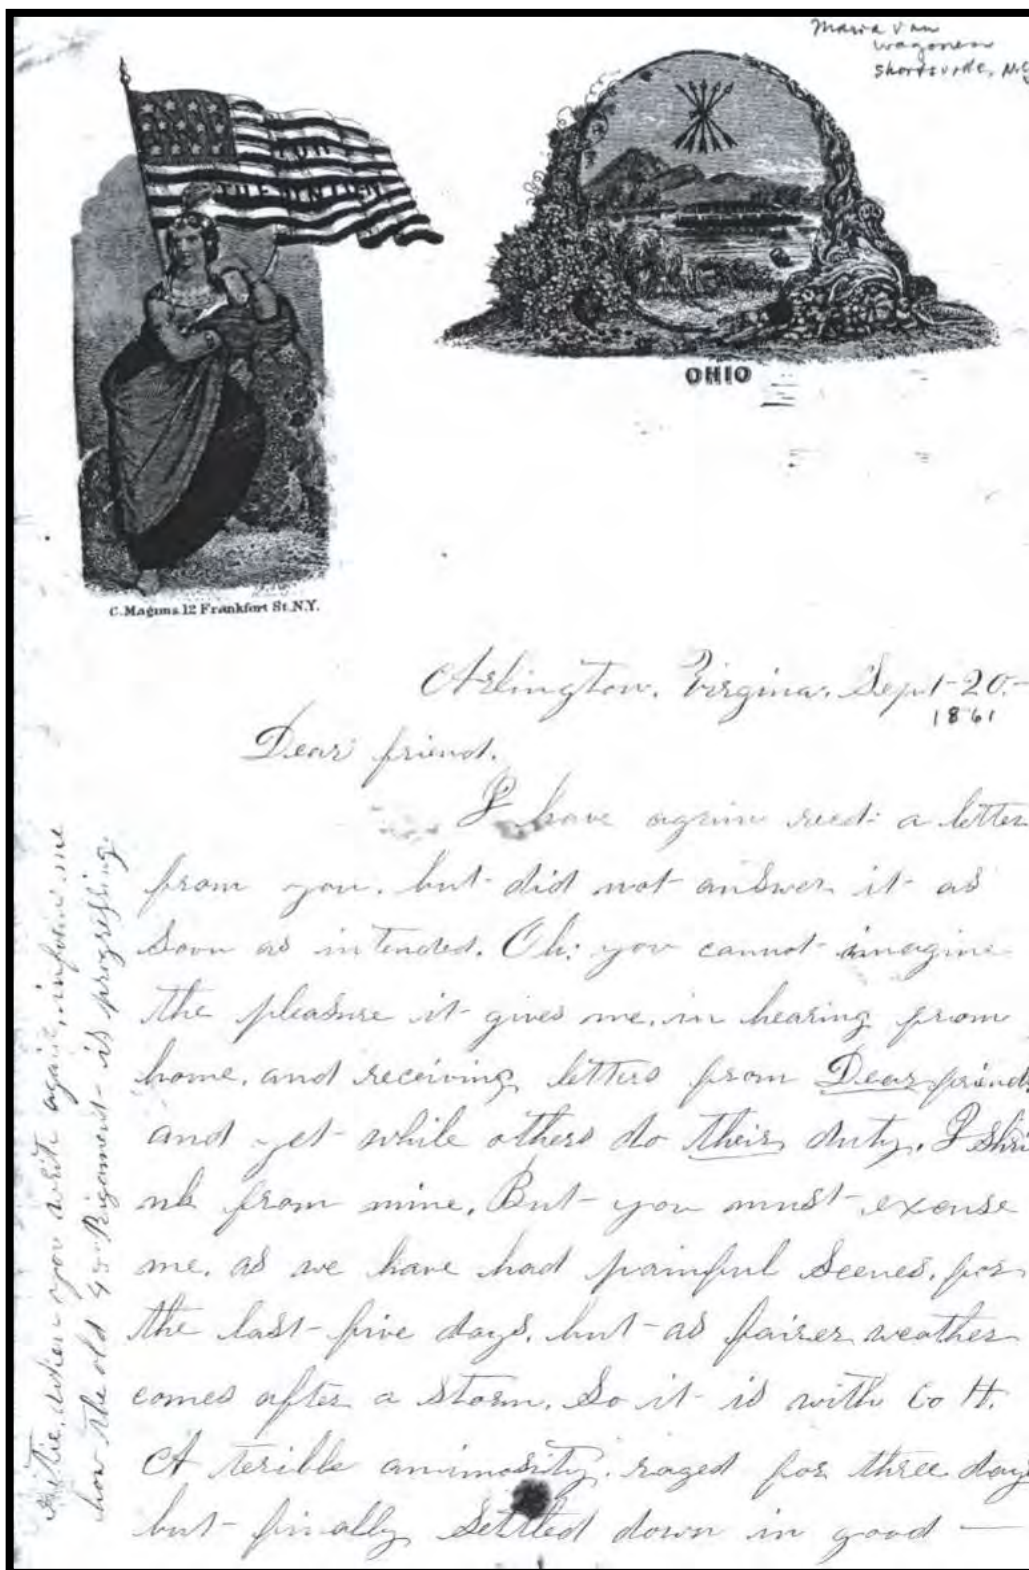 Maria van
Wagonen
Shortsville, N.Y.
THE UNION
OHIO
C. Magnus. 12 Frankfort St. N.Y.
Arlington. Virginia. Sept-20.-
1861
Dear friend.
I have again recd: a letter
from you. but-did not-answer it-as
Soon as intended. Oh: you cannot-imagine
the pleasure it-gives me. in hearing from
home. and receiving letters from Dear friends
and yet-while others do their duty. I Shri
nk from mine. But-you must-excuse
me. as we have had painful Scenes. for
the last-five days. but-as fairer weather
comes after a Storm. So it-is with Co H.
A terible animosity. raged for three days
but-finally Settled down in good -
when you write again, inform me
how the old Rigament-is progressing.